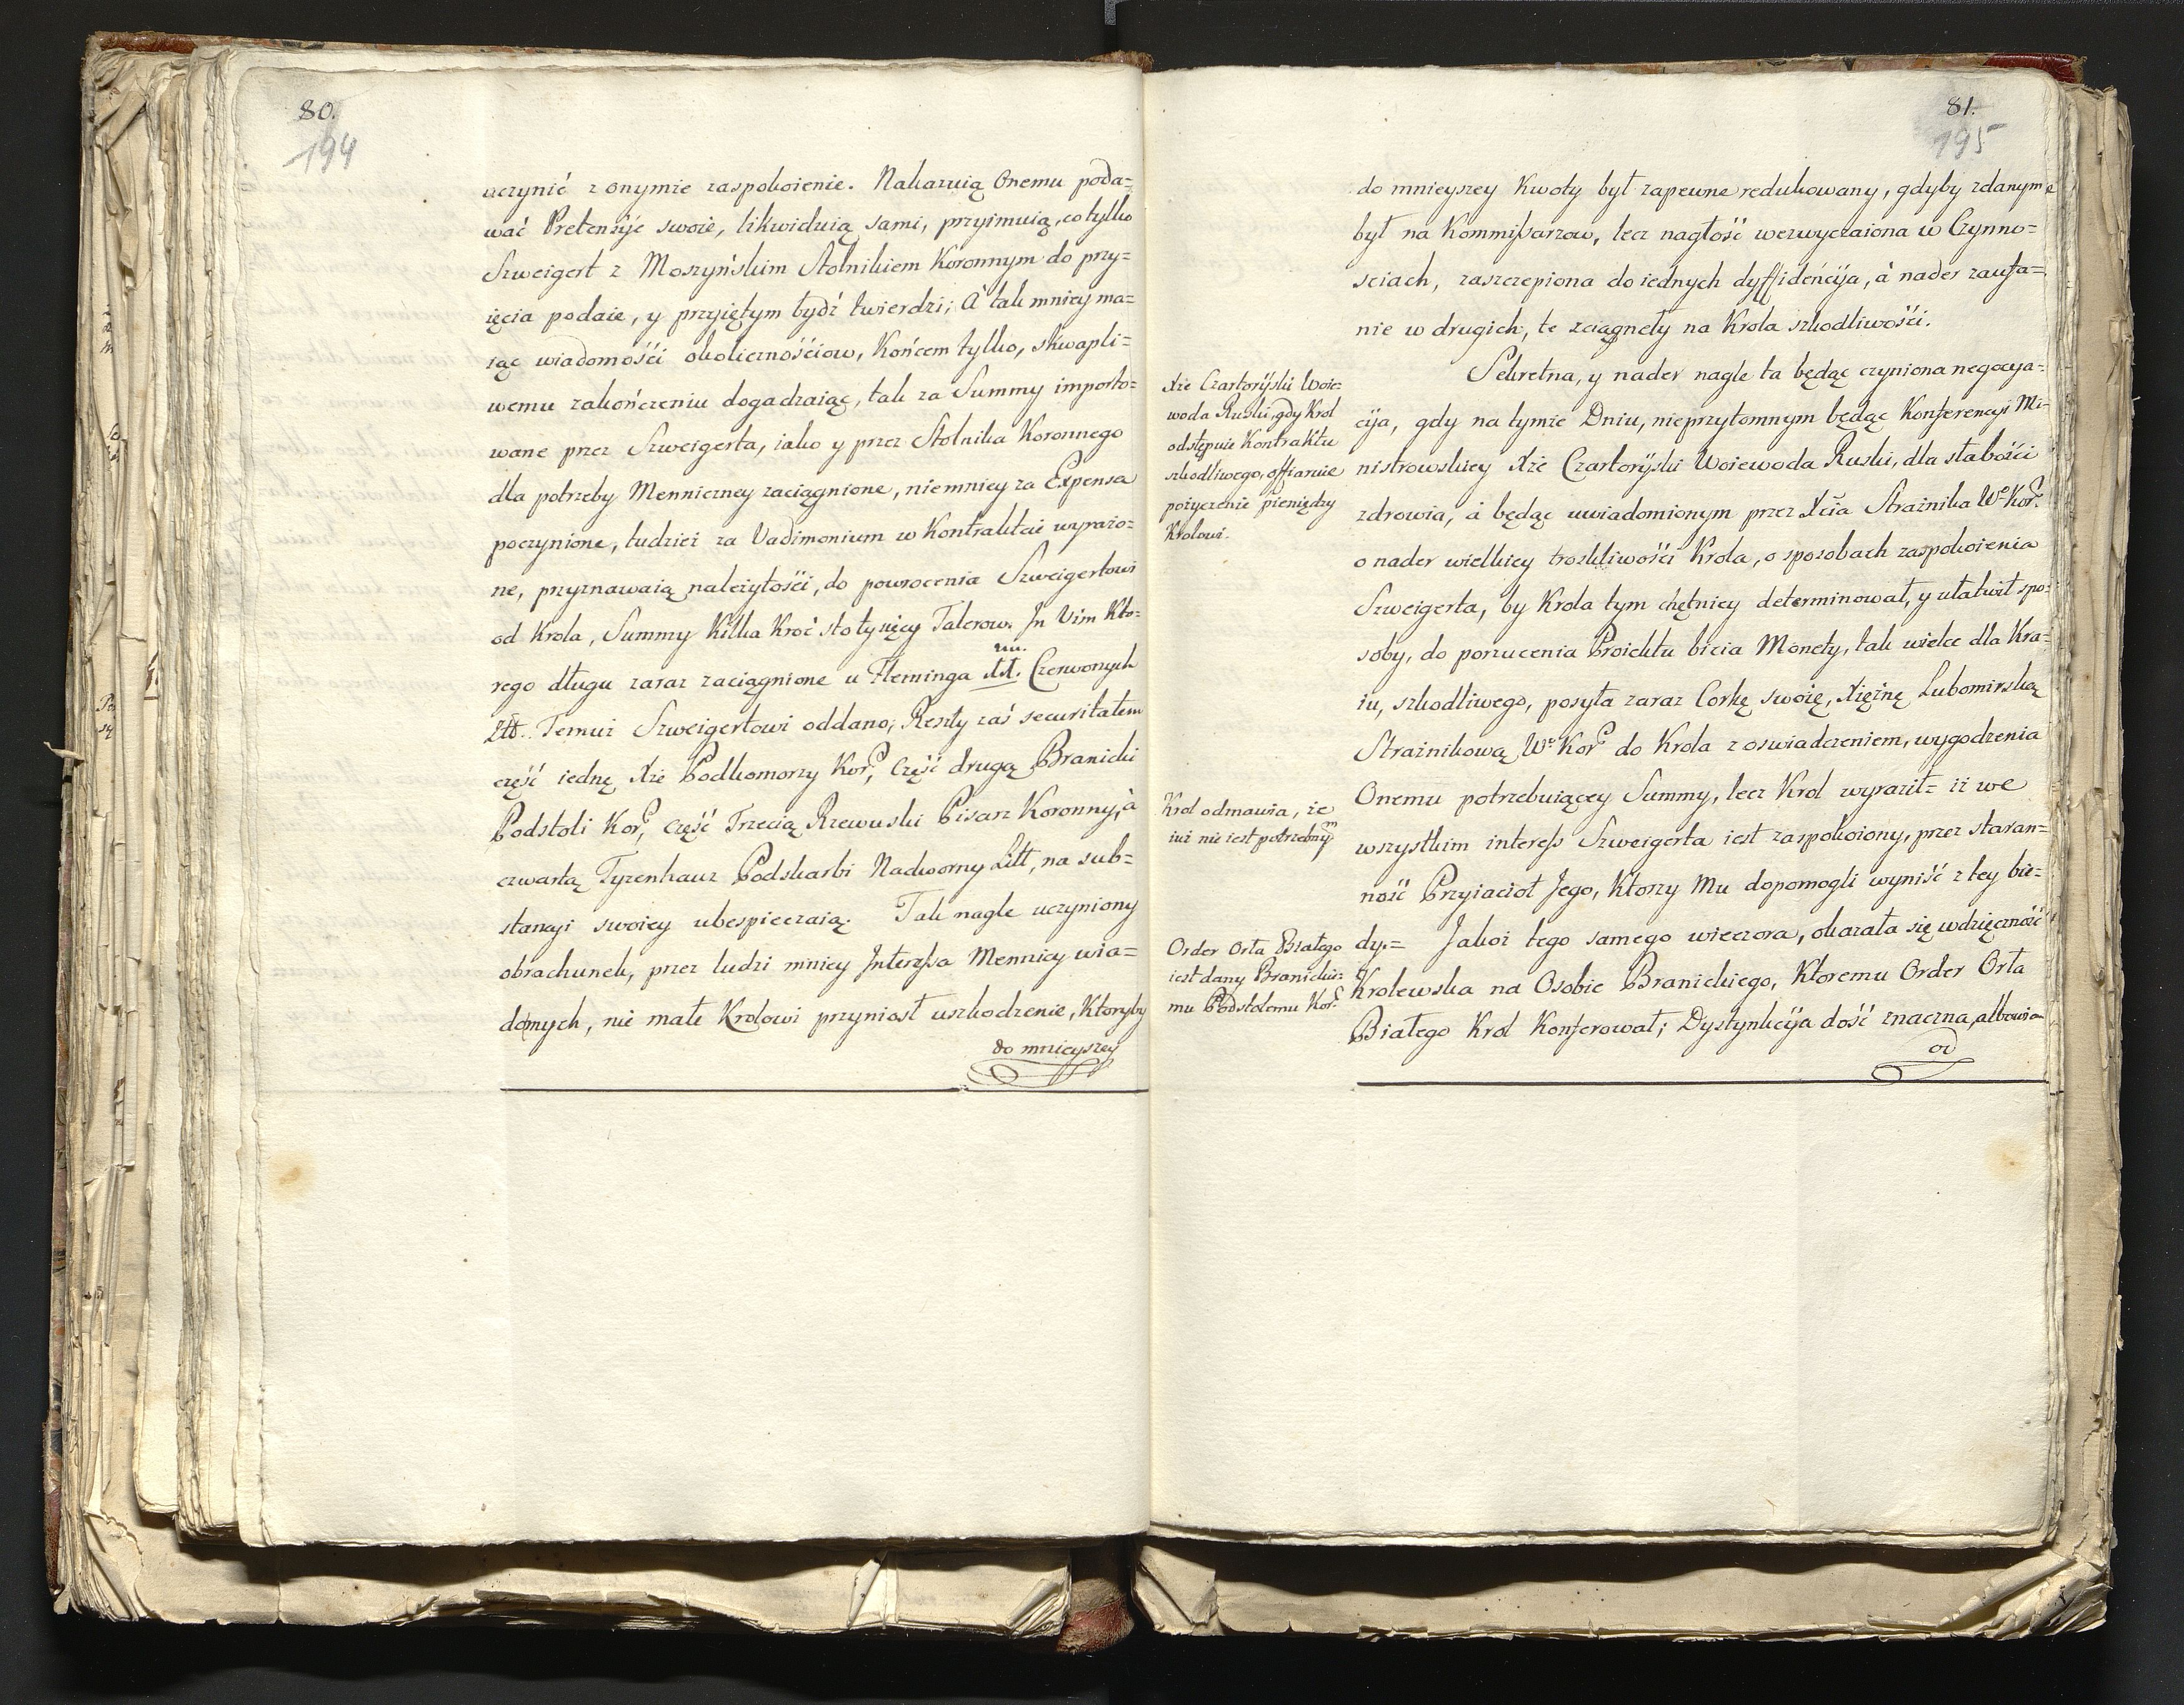 80.
194
uczynić z onymże zaspokoienie. Nakazuią Onemu poda=
wać Pretensÿje swoie, likwiduią sami, przyimuią, co tylko
Szweigert z Moszyńskim Stolnikiem Koronnym do przy=
ięcia podaie, y przyiętym bydź twierdzi; A' tak mniey ma=
iąc wiadomości okolicznościow, Końcem tylko, skwapli=
wemu zakończeniu dogadzaiąc, tak za Summy importo=
wane przez Szweigerta, iako y przez Stolnika Koronnego
dla potrzeby Menniczney zaciągnione, niemniey za Expensa
poczynione, tudzież za Vadimonium w Kontraktcie wyrażo=
ne, przyznawaią należytości, do powrocenia Szweigertowi
od Krola, Summy Kilka Kroć sto tysięcy Talerow. In Vim Kto=
rego długu zaraz zaciągnione u Fleminga Czerwonych
Złł. Temuż Szweigertowi oddano; Reszty zaś securitatem
część iednę Xże Podkomorzy Kor:, Część drugą Branicki
Podstoli Kor:, część Trzecią Rzewuski Pisarz Koronny, à
czwartą Tyzenhauz Podskarbi Nadworny Litt, na sub=
stancyi swoiey ubespieczaią. Tak nagle uczyniony
obrachunek, przez ludzi mniey Interessa Mennicy wia=
domych, nie małe Krolowi przyniosł uszkodzenie, Ktoryby
do mnieyszey
81.
195
do mnieyszey Kwoty był zapewne redukowany, gdyby zdanym
był na Kommissarzow, lecz nagłość wezwyczaiona w Czynno=
sciach, zaszczepiona do iednych dyffidencÿja, à nader zaufa=
nie w drugich, te zciągneły na Krola szkodliwości.
Xże Czartorÿski Woie=
woda Ruski, gdy Krol
odstępuie Kontraktu
szkodliwego, offiaruie
pożyczenie pieniędzy
Krolowi.
Sekretna, y nader nagle ta będąc czyniona negocya=
cÿja, gdy na tymże Dniu, nieprzytomnym będąc Konferencyi Mi=
nistrowskiey Xże Czartorÿski Woiewoda Ruski, dla słabości
zdrowia, à będąc uwiadomionym przez Xcia Strażnika Wo Kor:
o nader wielkiey troskliwości Krola, o sposobach zaspokoienia
Szweigerta, by Krola tym chętniey determinował, y ułatwił spo=
soby, do porzucenia Proiektu bicia Monety, tak wielce dla Kra=
iu, szkodliwego, posyła zaraz Corkę swoię, Xiężnę Lubomirską
Strażnikową Wo Kor: do Krola z oswiadczeniem, wygodzenia
Onemu potrzebuiącey Summy, lecz Krol wyraził= iż we
Krol odmawia, że
iuż nie iest potrzebnym
wszystkim interess Szweigerta iest zaspokoiony, przez staran=
ność Przyiacioł Jego, Ktorzy Mu dopomogli wyniść z tey bie=
dy.= Jakoż tego samego wieczora, okazała się wdzięczność
Order Orła Białego
iest dany Branickie=
mu Podstolemu Kor:
Krolewska na Osobie Branickiego, Ktoremu Order Orła
Białego Krol Konferował; Dystynkcÿja dość znaczna, albowiem
od